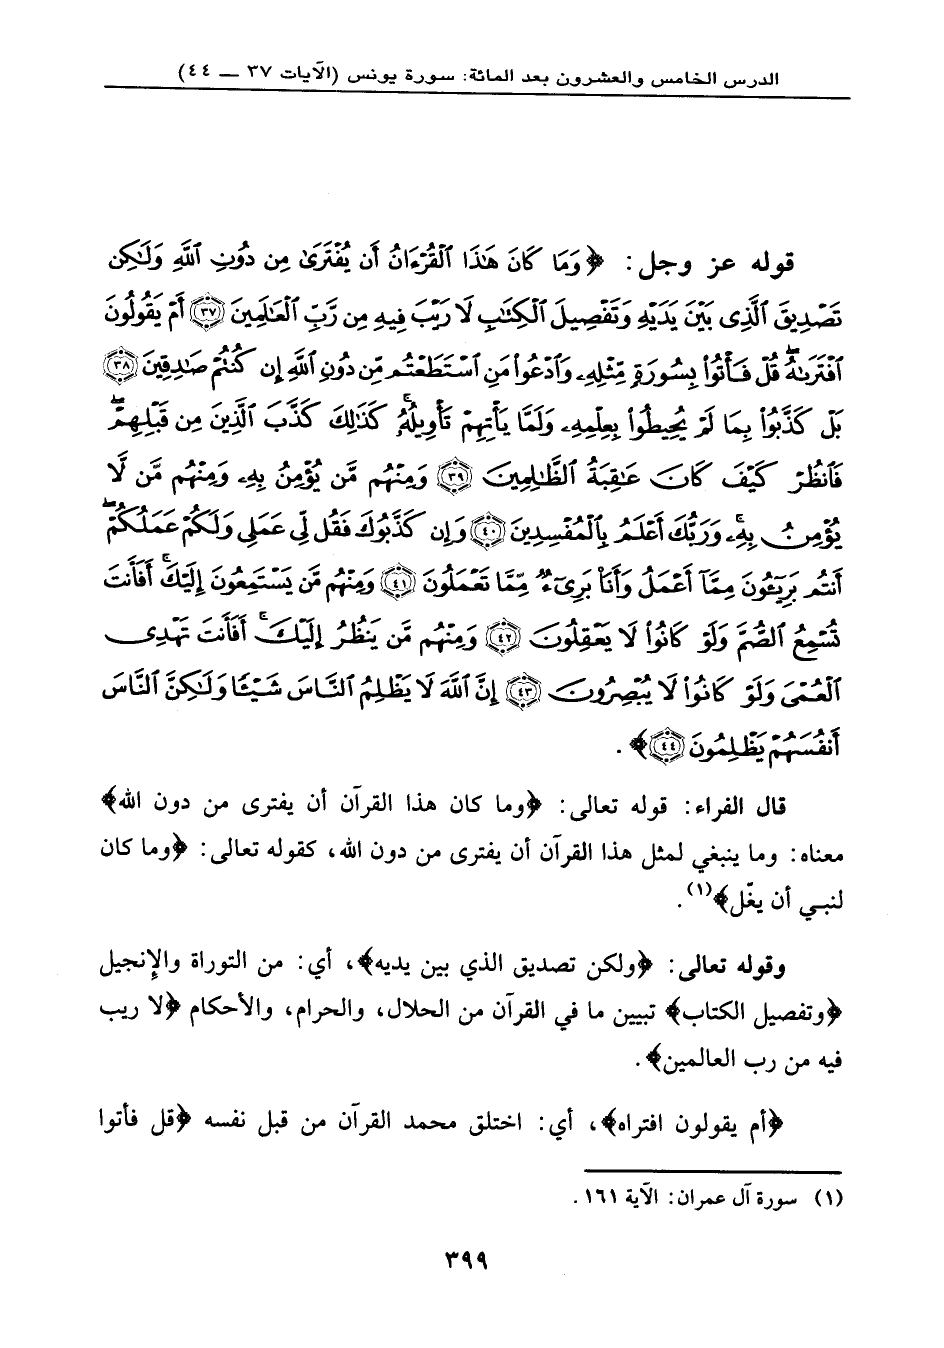 الدرس الخامس والعشرون بعد المائة: سورة يونس (الآيات ٣٧ — ٤٤)
قوله عز وجل: ﴿وَمَا كَانَ هَٰذَا ٱلْقُرْءَانُ أَن يُفْتَرَىٰ مِن دُونِ ٱللَّهِ وَلَٰكِن
تَصْدِيقَ ٱلَّذِى بَيْنَ يَدَيْهِ وَتَفْصِيلَ ٱلْكِتَٰبِ لَا رَيْبَ فِيهِ مِن رَّبِّ ٱلْعَٰلَمِينَ ۝٣٧ أَمْ يَقُولُونَ
ٱفْتَرَىٰهُ ۖ قُلْ فَأْتُوا۟ بِسُورَةٍ مِّثْلِهِۦ وَٱدْعُوا۟ مَنِ ٱسْتَطَعْتُم مِّن دُونِ ٱللَّهِ إِن كُنتُمْ صَٰدِقِينَ ۝٣٨
بَلْ كَذَّبُوا۟ بِمَا لَمْ يُحِيطُوا۟ بِعِلْمِهِۦ وَلَمَّا يَأْتِهِمْ تَأْوِيلُهُۥ ۚ كَذَٰلِكَ كَذَّبَ ٱلَّذِينَ مِن قَبْلِهِمْ ۖ
فَٱنظُرْ كَيْفَ كَانَ عَٰقِبَةُ ٱلظَّٰلِمِينَ ۝٣٩ وَمِنْهُم مَّن يُؤْمِنُ بِهِۦ وَمِنْهُم مَّن لَّا
يُؤْمِنُ بِهِۦ ۚ وَرَبُّكَ أَعْلَمُ بِٱلْمُفْسِدِينَ ۝٤٠ وَإِن كَذَّبُوكَ فَقُل لِّى عَمَلِى وَلَكُمْ عَمَلُكُمْ ۖ
أَنتُم بَرِيٓـُٔونَ مِمَّآ أَعْمَلُ وَأَنَا۠ بَرِىٓءٌ مِّمَّا تَعْمَلُونَ ۝٤١ وَمِنْهُم مَّن يَسْتَمِعُونَ إِلَيْكَ ۚ أَفَأَنتَ
تُسْمِعُ ٱلصُّمَّ وَلَوْ كَانُوا۟ لَا يَعْقِلُونَ ۝٤٢ وَمِنْهُم مَّن يَنظُرُ إِلَيْكَ ۚ أَفَأَنتَ تَهْدِى
ٱلْعُمْىَ وَلَوْ كَانُوا۟ لَا يُبْصِرُونَ ۝٤٣ إِنَّ ٱللَّهَ لَا يَظْلِمُ ٱلنَّاسَ شَيْـًٔا وَلَٰكِنَّ ٱلنَّاسَ
أَنفُسَهُمْ يَظْلِمُونَ ۝٤٤﴾.
قال الفراء: قوله تعالى: ﴿وما كان هذا القرآن أن يفترى من دون الله﴾
معناه: وما ينبغي لمثل هذا القرآن أن يفترى من دون الله، كقوله تعالى: ﴿وما كان
لنبي أن يغّل﴾(١).
وقوله تعالى: ﴿ولكن تصديق الذي بين يديه﴾، أي: من التوراة والإنجيل
﴿وتفصيل الكتاب﴾ تبيين ما في القرآن من الحلال، والحرام، والأحكام ﴿لا ريب
فيه من رب العالمين﴾.
﴿أم يقولون افتراه﴾، أي: اختلق محمد القرآن من قبل نفسه ﴿قل فأتوا
(١) سورة آل عمران: الآية ١٦١.
٣٩٩